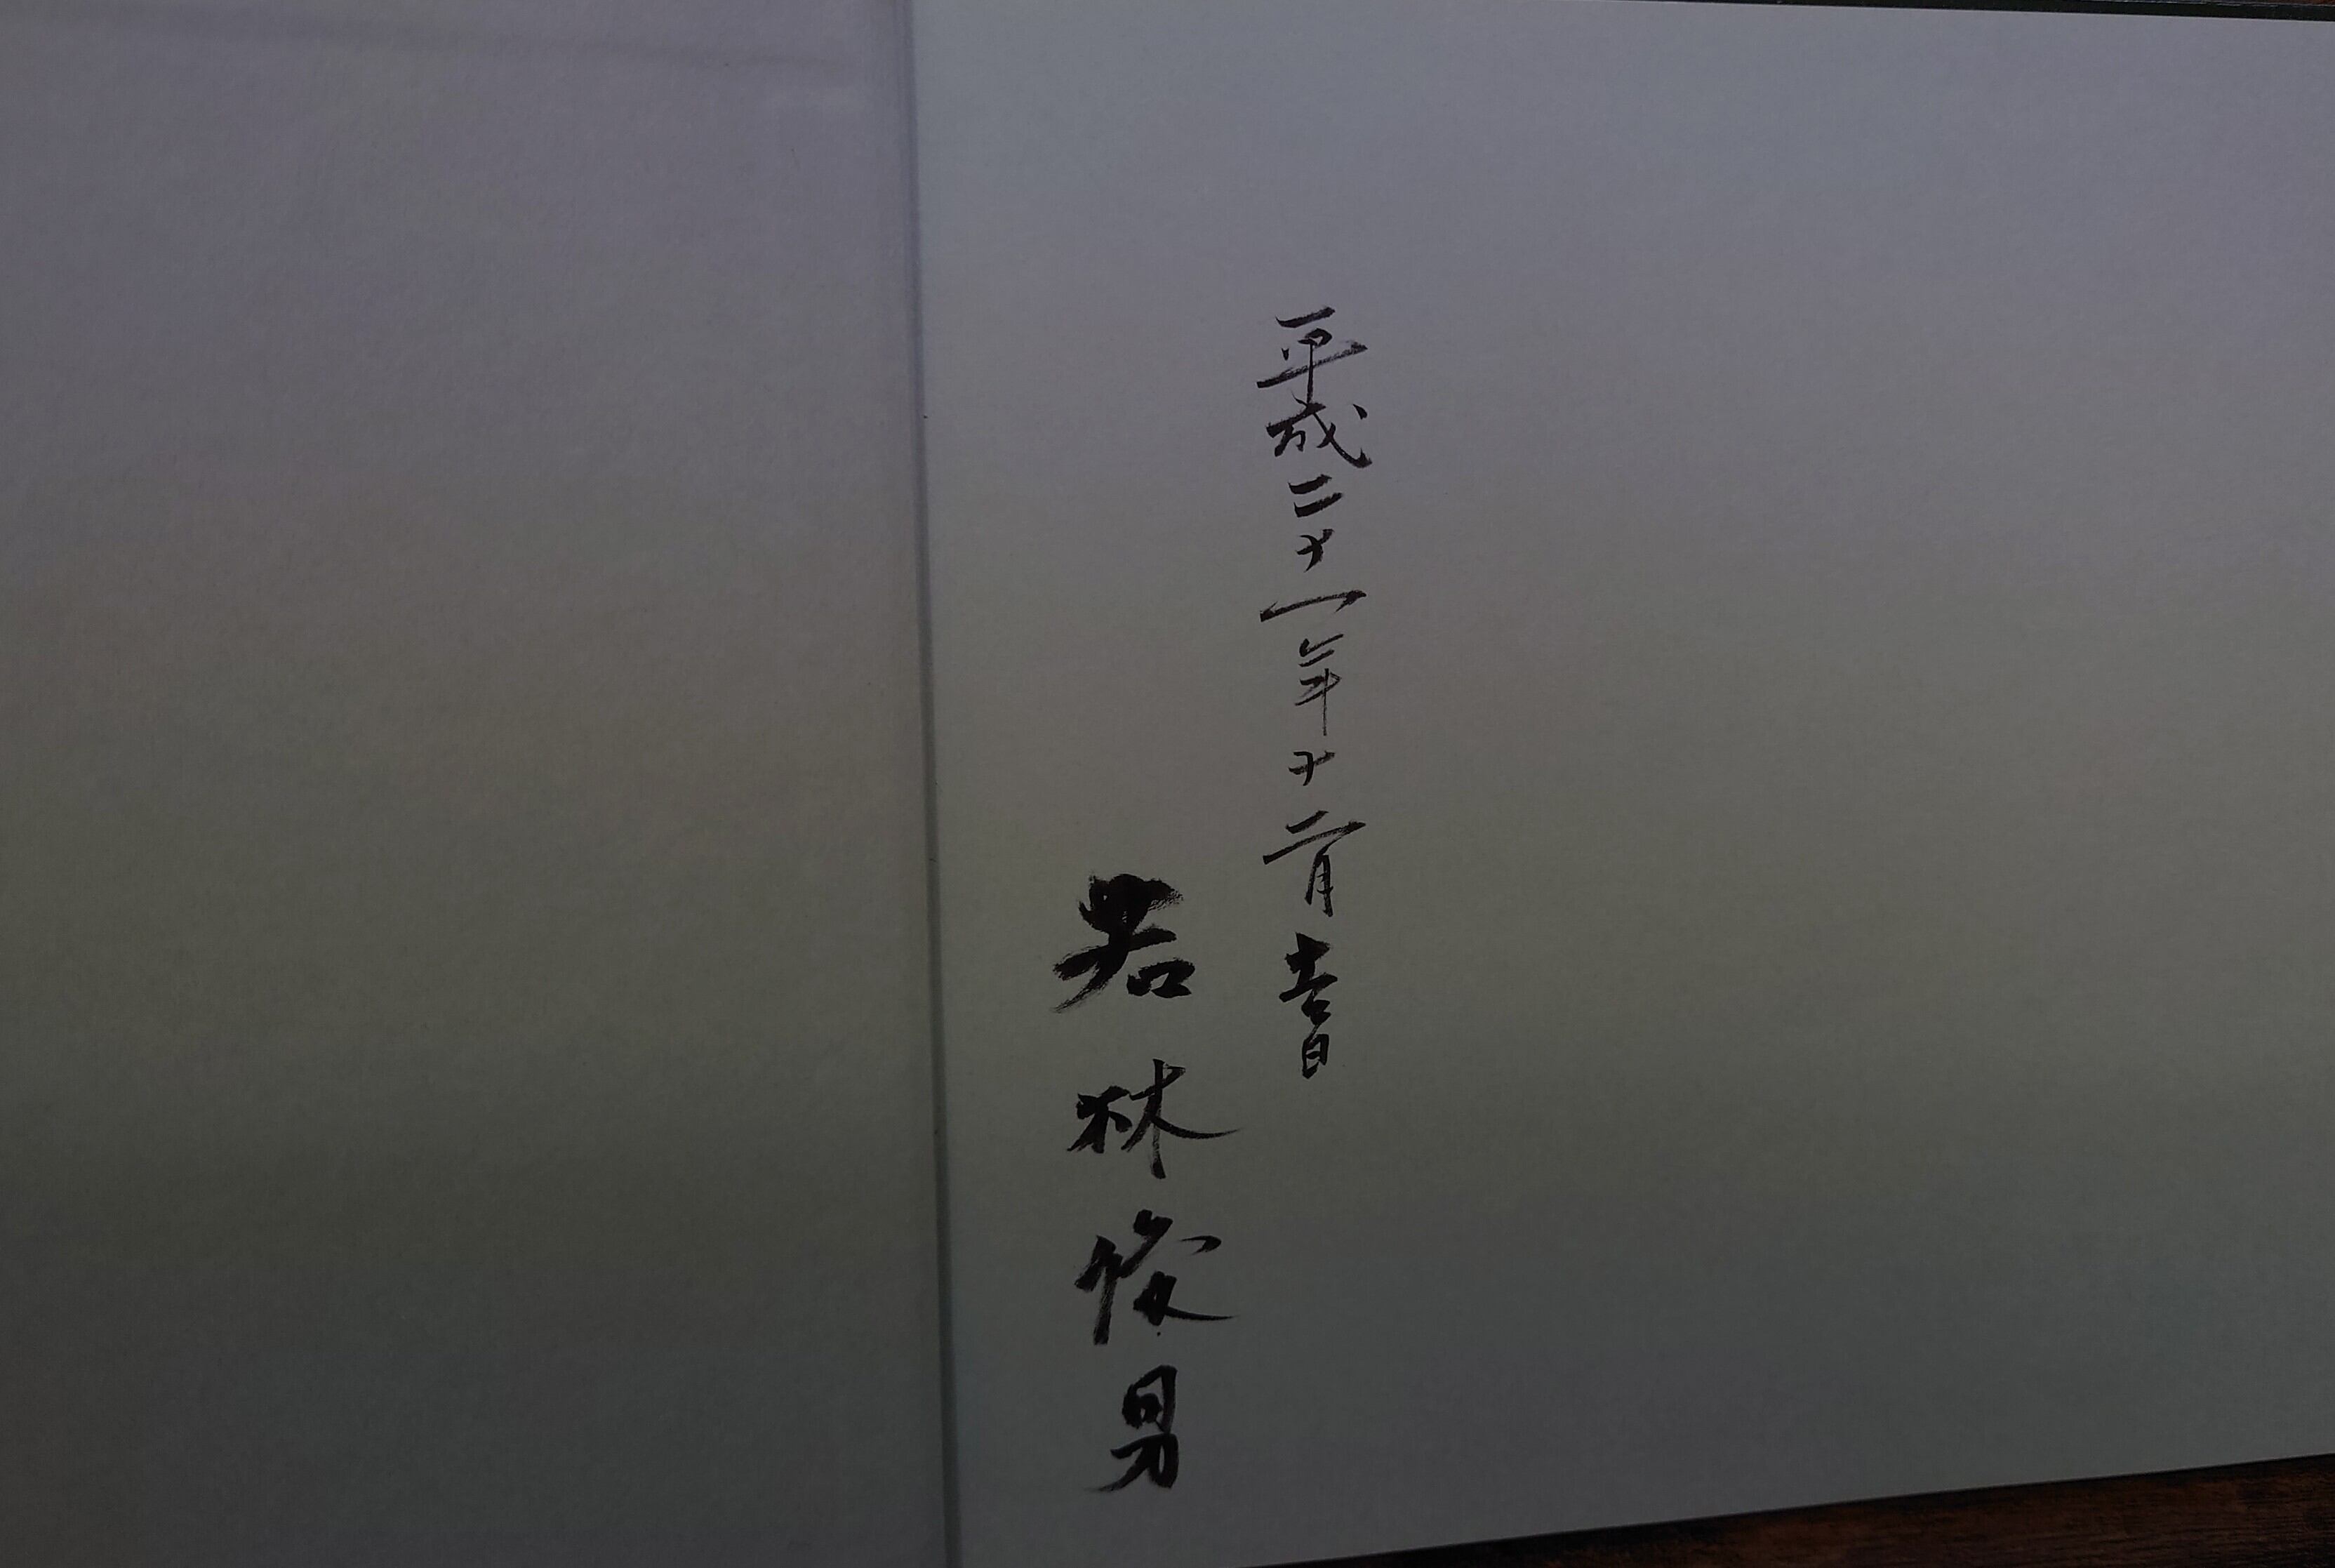 平成二十一年十二月吉日
若林俊男